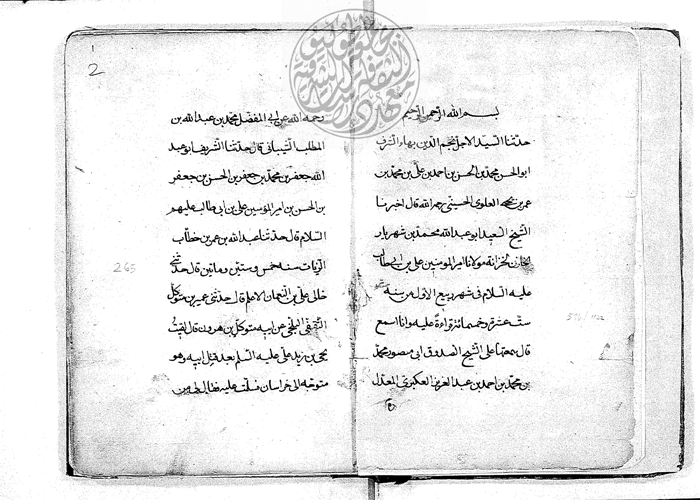 بسم الله الرحمن الرحيم
حدثنا السيد الاجل نجم الدين بهاء الشرف
ابو الحسن محمد بن الحسن بن احمد بن على بن محمد بن
عمر بن يحيى العلوى الحسينى رحمه الله قال اخبرنا
الشيخ السعيد ابو عبد الله محمد بن شهريار
الخازن لخزانة مولانا امير المومنين على بن ابى طالب
عليه السلام فى شهر ربيع الاول من سنة
ست عشرة وخمسمائة قراءة عليه وانا اسمع
قال سمعتها على الشيخ الصدوق ابى منصور محمد
بن محمد بن احمد بن عبد العزيز العكبرى المعدل
2
رحمه الله عن ابى المفضل محمد بن عبد الله بن
المطلب الشيبانى قال حدثنا الشريف ابو عبد
الله جعفر بن محمد بن جعفر بن الحسن بن جعفر
بن الحسن بن الحسن بن امير المومنين على بن ابى طالب عليهم
السلام قال حدثنا عبد الله بن عمر بن خطاب
الزيات سنه خمس وستين وماتين قال حدثنى
265
خالى على بن النعمان الاعلم قال حدثنى عمير بن متوكل
الثقفى البلخى عن ابيه متوكل بن هرون قال لقيت
يحيى بن زيد بن على عليه السلم بعد قتل ابيه وهو
متوجه الى خراسان فسلمت عليه فقال لى من